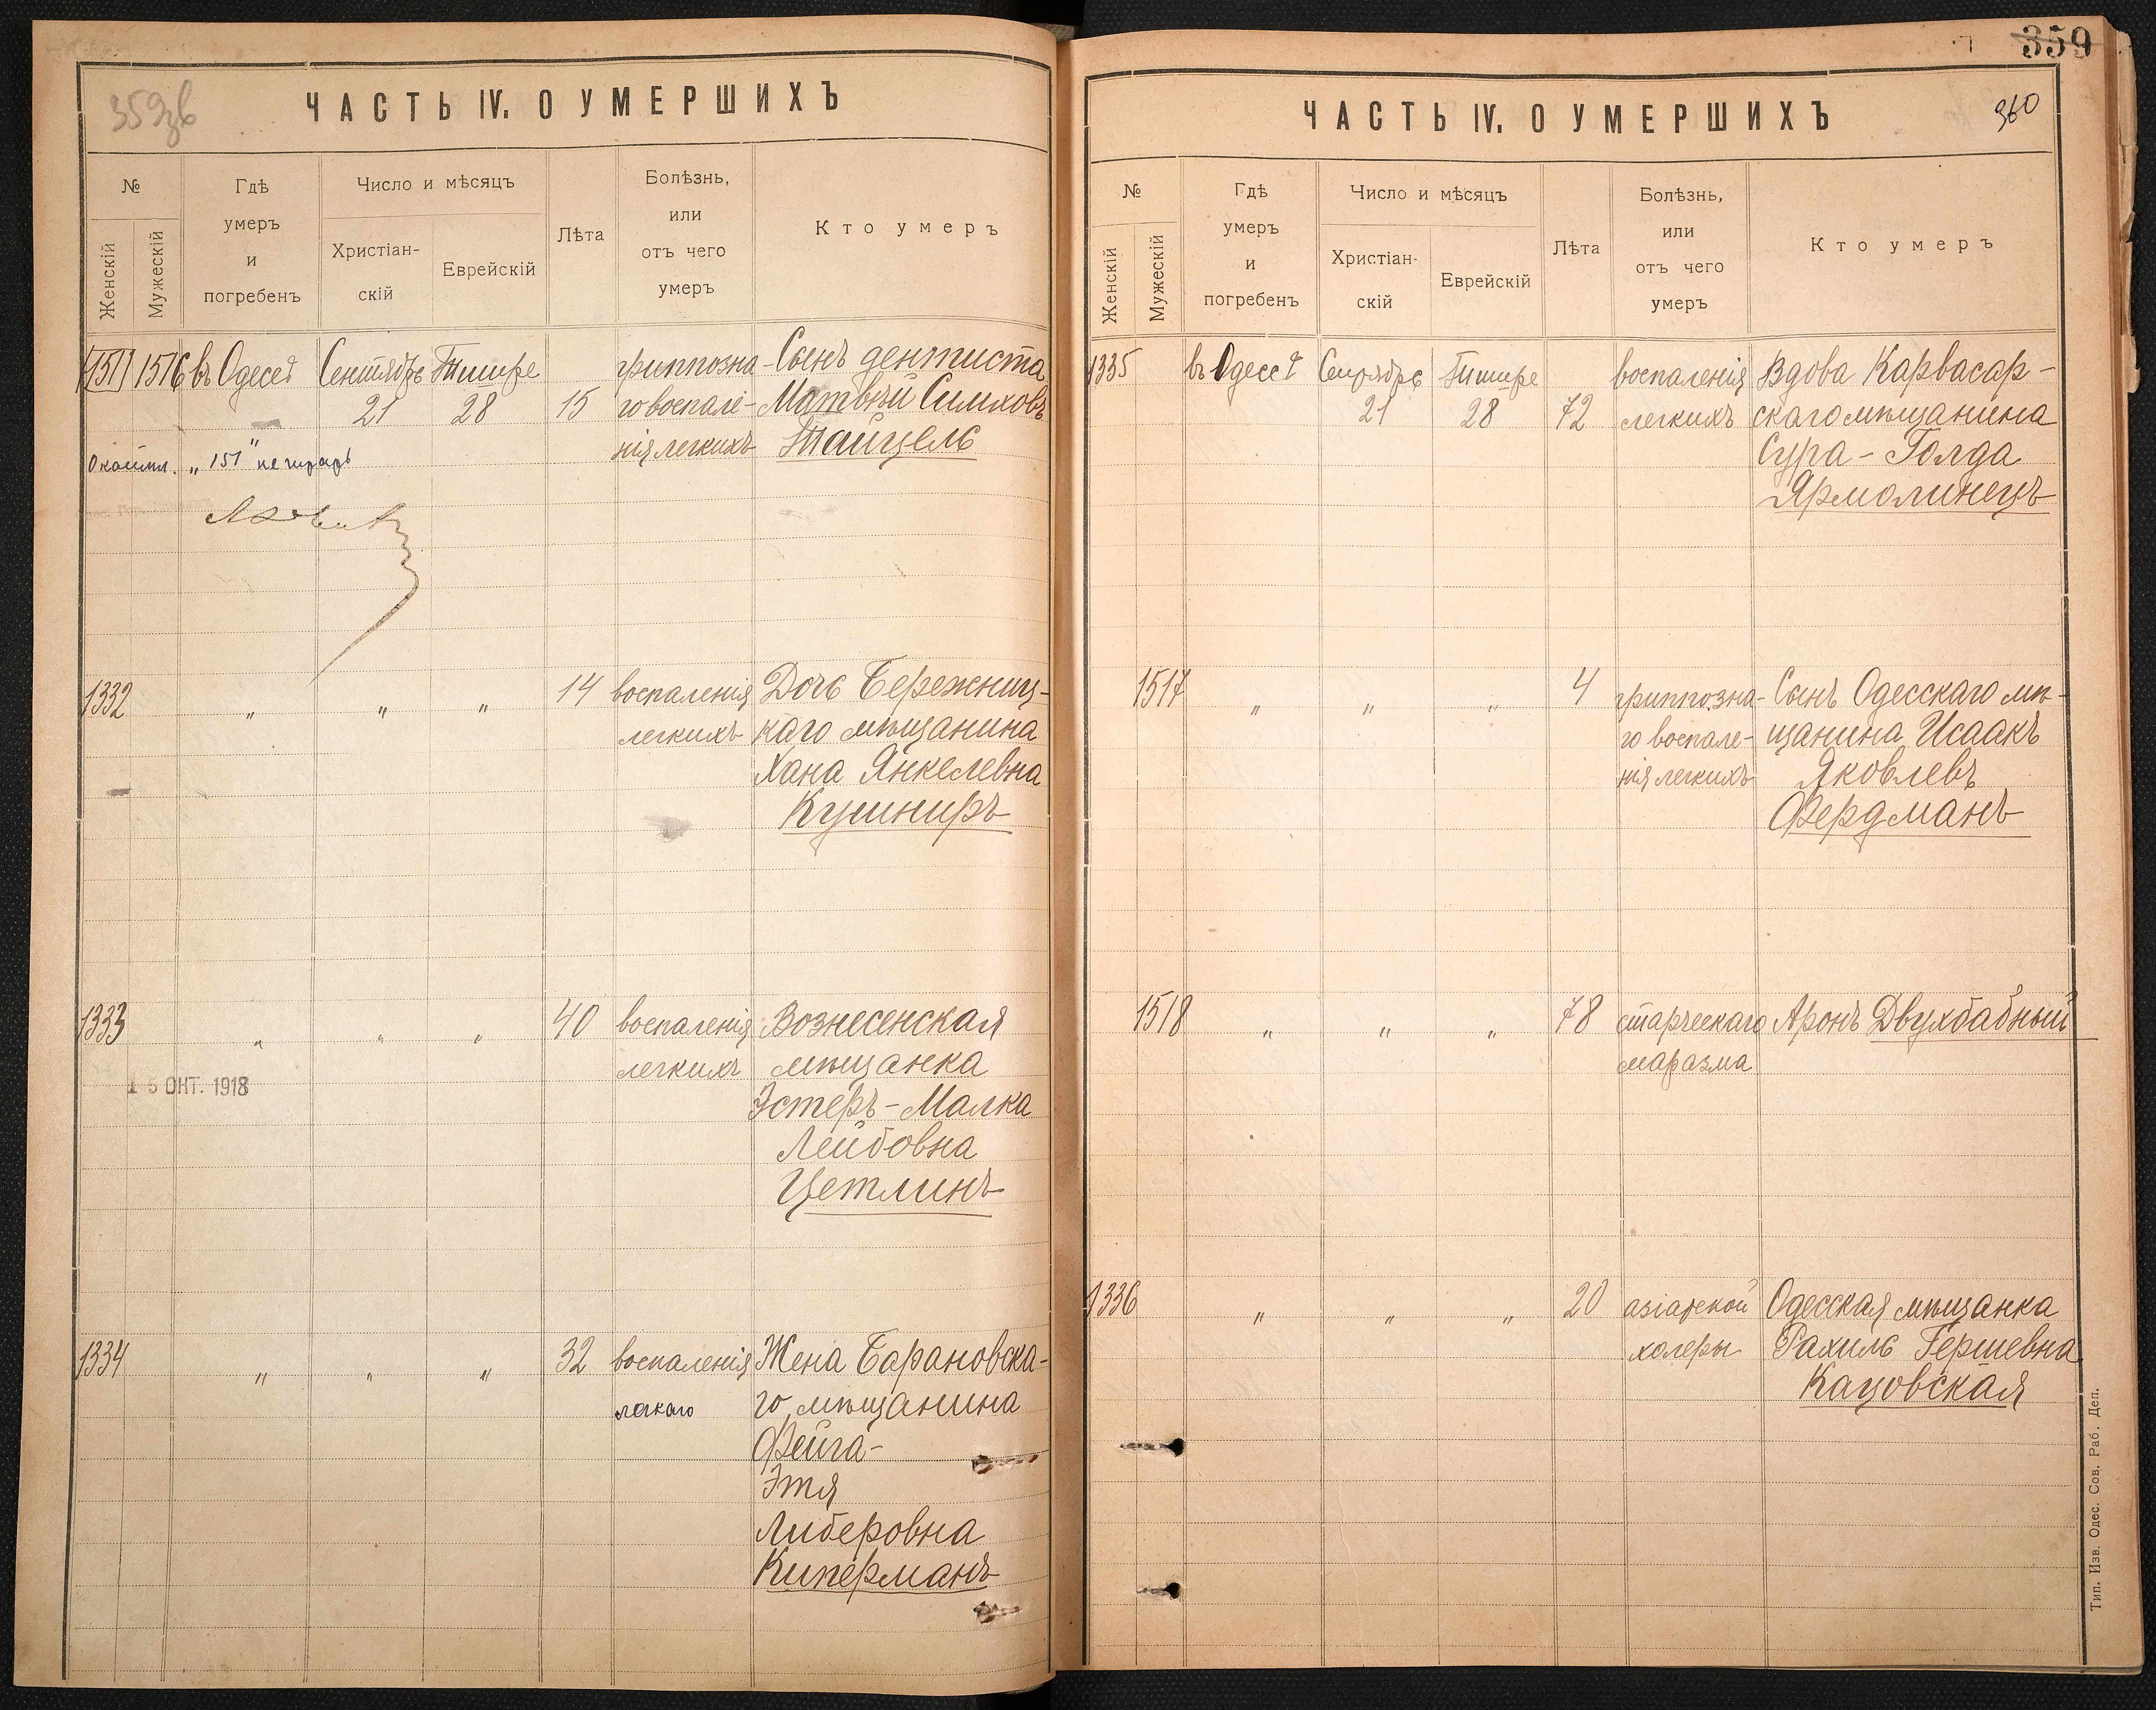 359
359зв
ЧАСТЬ IV. О УМЕРШИХЪ
№
Женскій
Мужескій
Гдѣ
умеръ
и
погребенъ
Число и мѣсяцъ
Христіан-
скій
Еврейскій
Лѣта
Болѣзнь,
или
отъ чего
умеръ
Кто умеръ
151 1516 въ Одессѣ Сентябрь Тишре гриппозна- Сынъ дентиста
21 28 15 го воспале- Матвѣй Симховъ
нія легкихъ Тайцель
"151" не читать
1332 " " " 14 воспаленія Дочь Бережниц-
легкихъ каго мѣщанина
Хана Янкелевна
Кушниръ
1333 " " " 40 воспаленія Вознесенская
15 ОКТ. 1918 легкихъ мѣщанка
Эстеръ-Малка
Лейбовна
Цетлинъ
1334 " " " 32 воспаленія Жена Барановска-
легкаго го мѣщанина
Фейга-
Этя
Либеровна
Киперманъ
360
ЧАСТЬ IV. О УМЕРШИХЪ
№
Женскій
Мужескій
Гдѣ
умеръ
и
погребенъ
Число и мѣсяцъ
Христіан-
скій
Еврейскій
Лѣта
Болѣзнь,
или
отъ чего
умеръ
Кто умеръ
1335 въ Одессѣ Сентябрь Тишре воспаленія Вдова Карвасар-
21 28 72 легкихъ скаго мѣщанина
Сура-Голда
Ярмолинецъ
1517 " " " 4 гриппозна- Сынъ Одесскаго мѣ-
го воспале- щанина Исаакъ
нія легкихъ Яковлевъ
Фердманъ
1518 " " " 78 старческаго Аронъ Двухбабный
маразма
1336 " " " 20 азіатской Одесская мѣщанка
холеры Рахиль Гершевна
Кацовская
Тип. Изв. Одес. Сов. Раб. Деп.